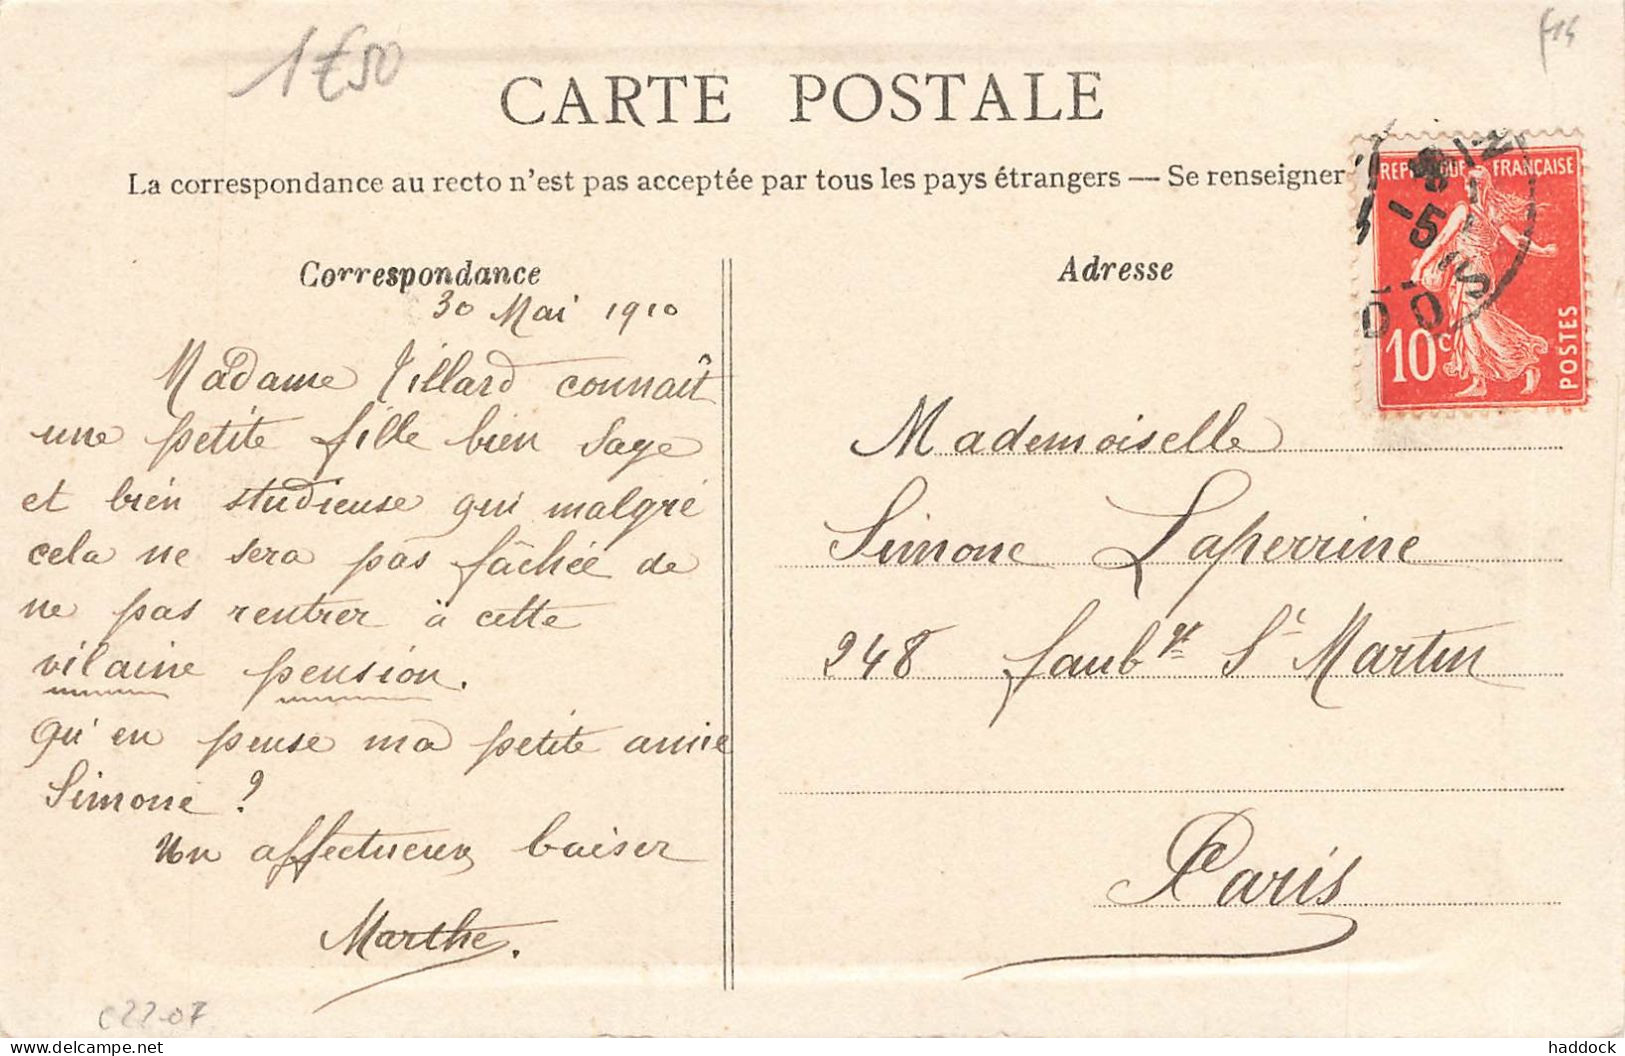 1€50
f14
CARTE POSTALE
La correspondance au recto n'est pas acceptée par tous les pays étrangers — Se renseigner
REPUBLIQUE FRANÇAISE
10c
POSTES
Correspondance
30 Mai 1910
Madame Tillard connaît
une petite fille bien sage
et bien studieuse qui malgré
cela ne sera pas fâchée de
ne pas rentrer à cette
vilaine pension.
Qu'en pense ma petite amie
Simone ?
Un affectueux baiser
Marthe.
c22-07
Adresse
Mademoiselle
Simone Laperrine
248 faubg St Martin
Paris
delcampe.net
haddock